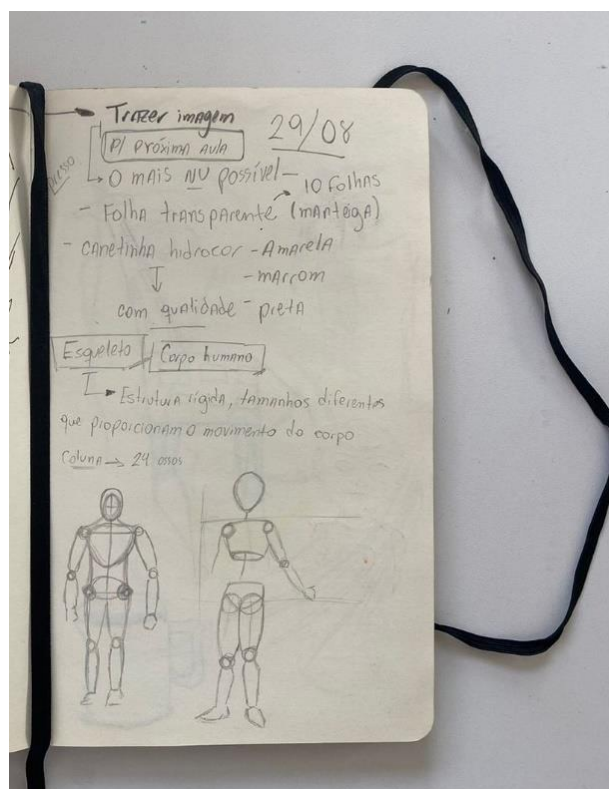 Trazer imagem
29/08
P/ próxima aula
O mais NU possível -
10 folhas
- Folha transparente (manteiga)
- canetinha hidrocor - Amarela
- marrom
com qualidade - preta
Esqueleto
Corpo humano
Estrutura rígida, tamanhos diferentes
que proporcionam o movimento do corpo
Coluna → 24 ossos